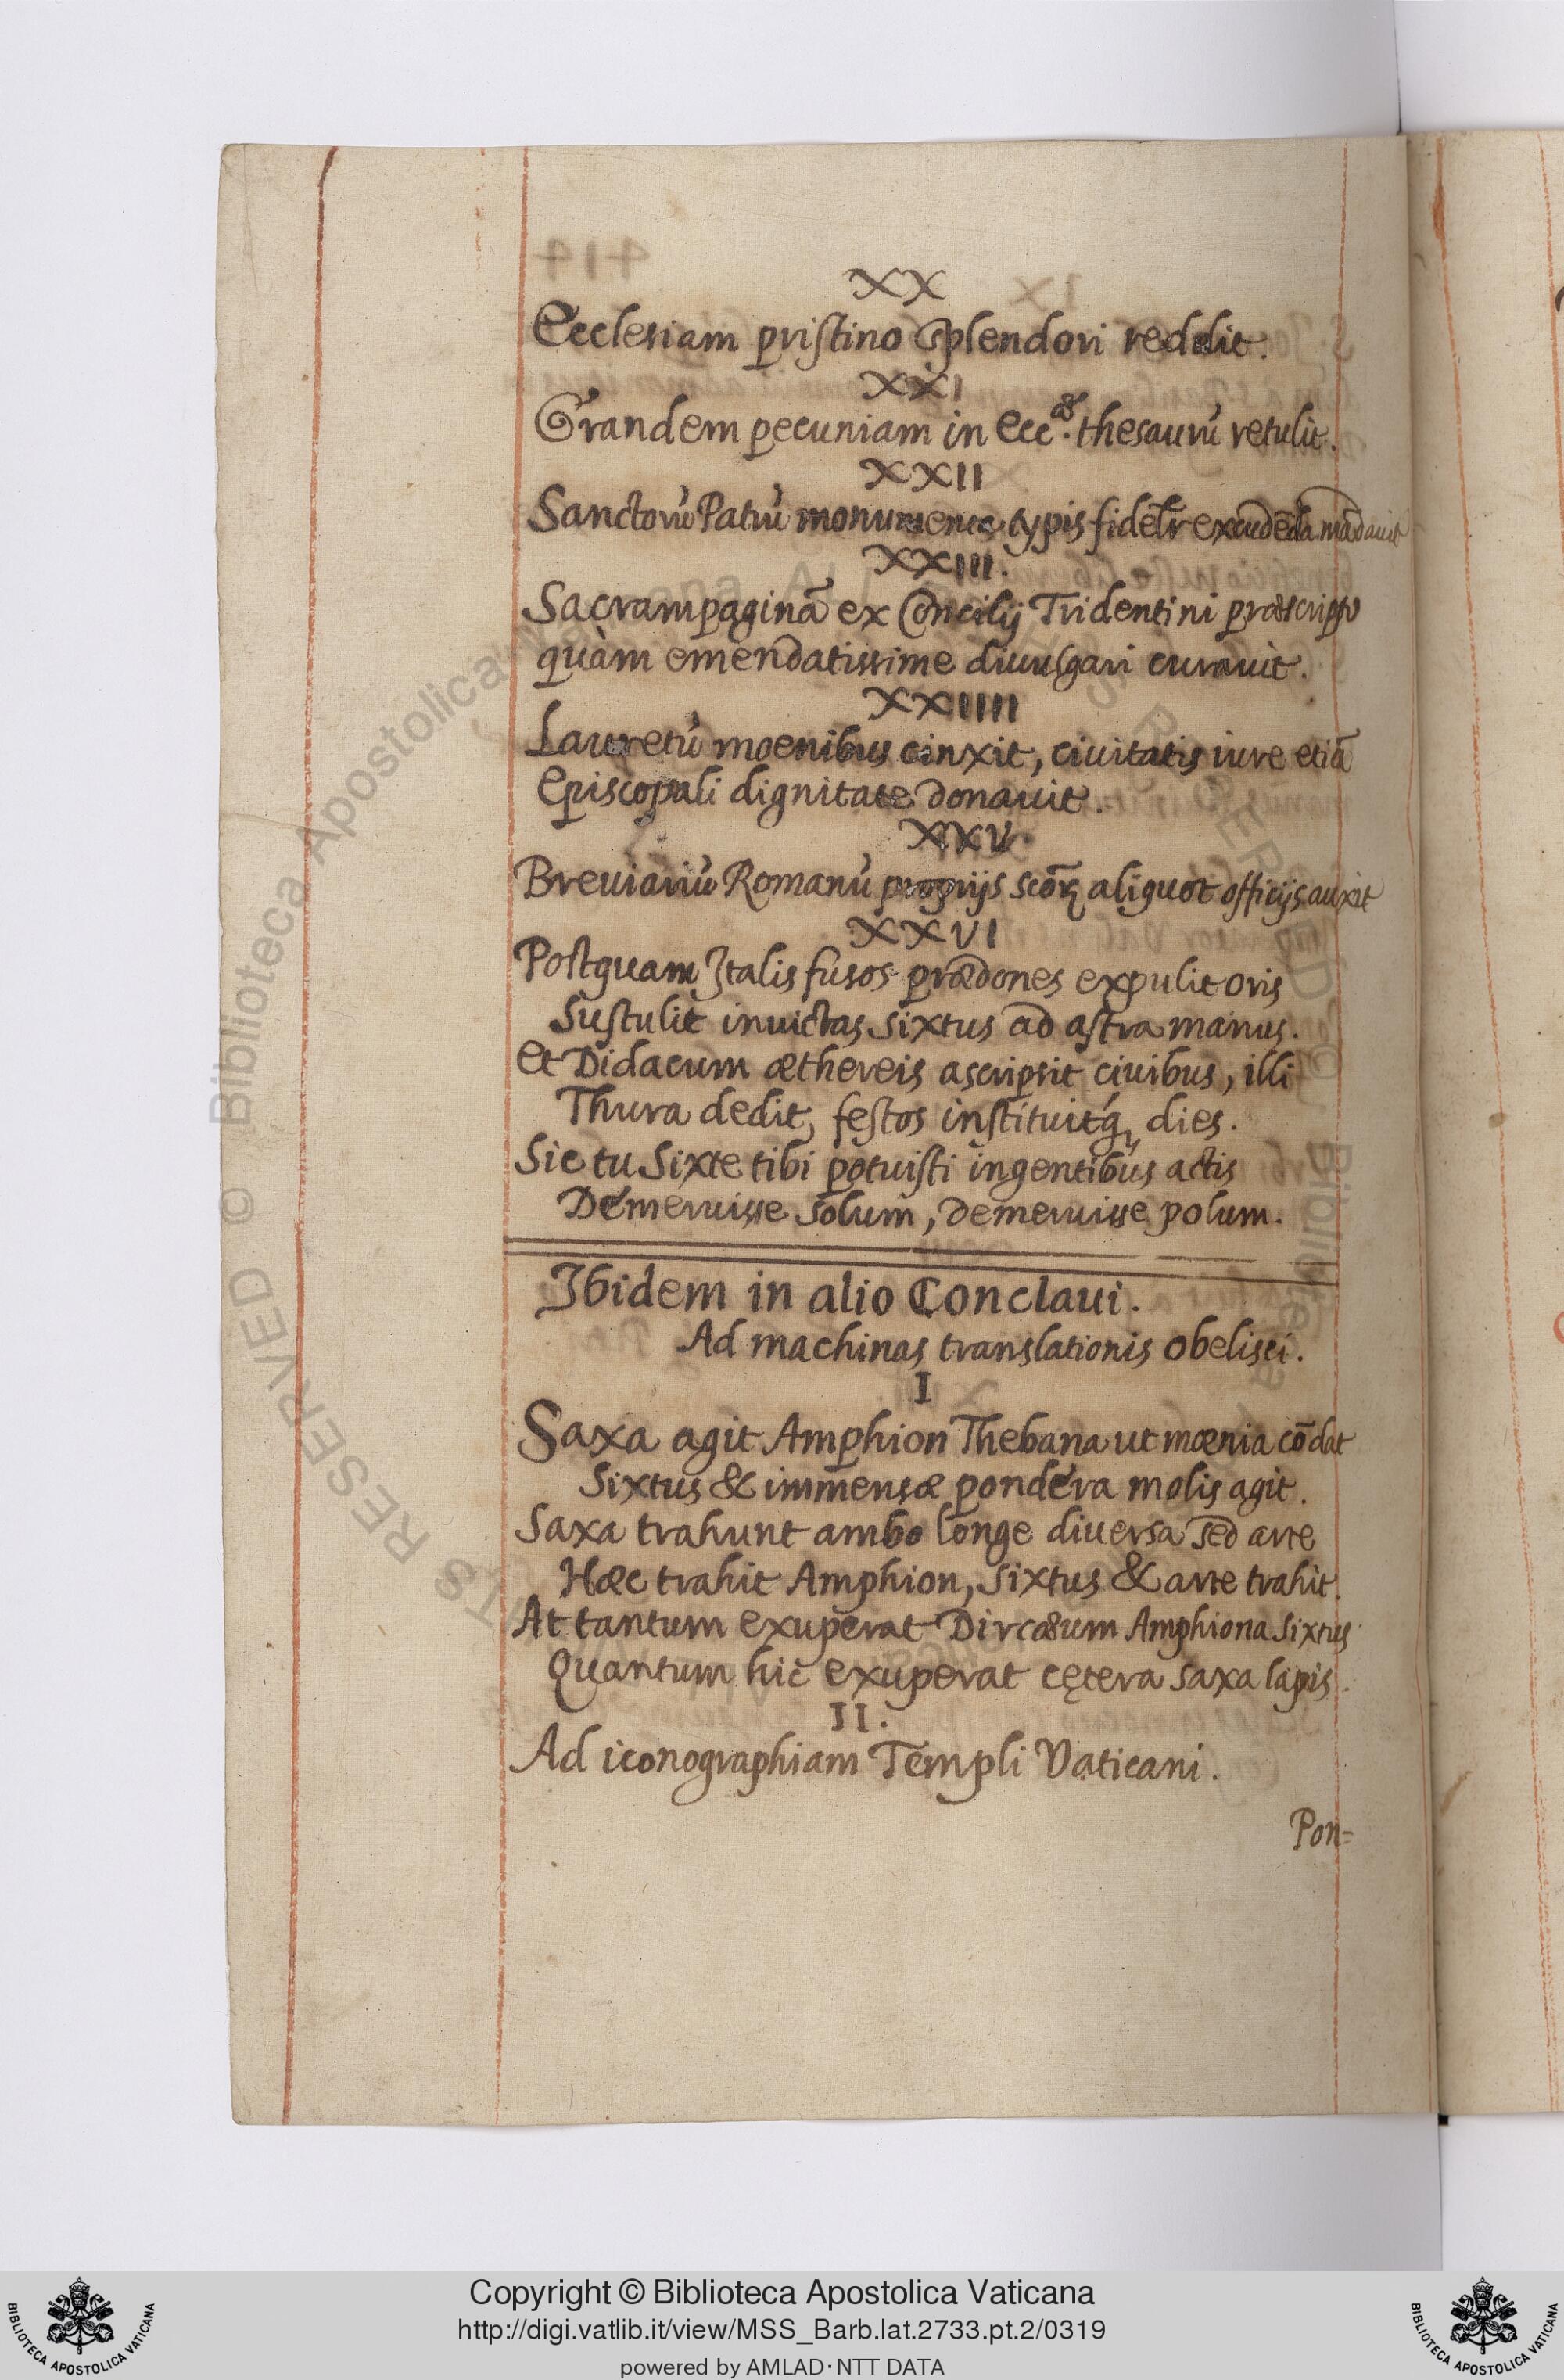 XX
Ecclesiam pristino splendori reddidit.
XXI
Grandem pecuniam in Ecc.æ thesaurũ retulit.
XXII
Sanctorũ Patrũ monumenta typis fidelr̃ excudẽda mãdauit
XXIII.
Sacram paginã ex Concilij Tridentini præscripto
quàm emendatissime diuulgari curauit.
XXIIII
Lauretũ moenibus cinxit, ciuitatis iure etiã
Episcopali dignitate donauit.
XXV.
Breuiariũ Romanũ proprijs scõꝝ aliquot officijs auxit
XXVI
Postquam Italis fusos prædones expulit oris
Sustulit inuictas Sixtus ad astra manus.
Et Didacum æthereis ascripsit ciuibus, illi
Thura dedit, festos instituitq́ꝫ dies.
Sic tu Sixte tibi potuisti ingentibus actis
Demeruisse solum, demeruisse polum.
Ibidem in alio Conclaui.
Ad machinas translationis obelisci.
I
Saxa agit Amphion Thebana ut mœnia cõdat
Sixtus & immensæ pondera molis agit.
Saxa trahunt ambo longe diuersa sed arte
Hæc trahit Amphion, Sixtus & arte trahit.
At tantum exuperat Dircæum Amphiona Sixtus
Quantum hic exuperat cętera saxa lapis.
II.
Ad iconographiam Templi Vaticani.
Pon=
© Biblioteca Apostolica Vaticana
RESERVED
Copyright © Biblioteca Apostolica Vaticana
http://digi.vatlib.it/view/MSS_Barb.lat.2733.pt.2/0319
powered by AMLAD·NTT DATA
BIBLIOTECA APOSTOLICA VATICANA
BIBLIOTECA APOSTOLICA VATICANA